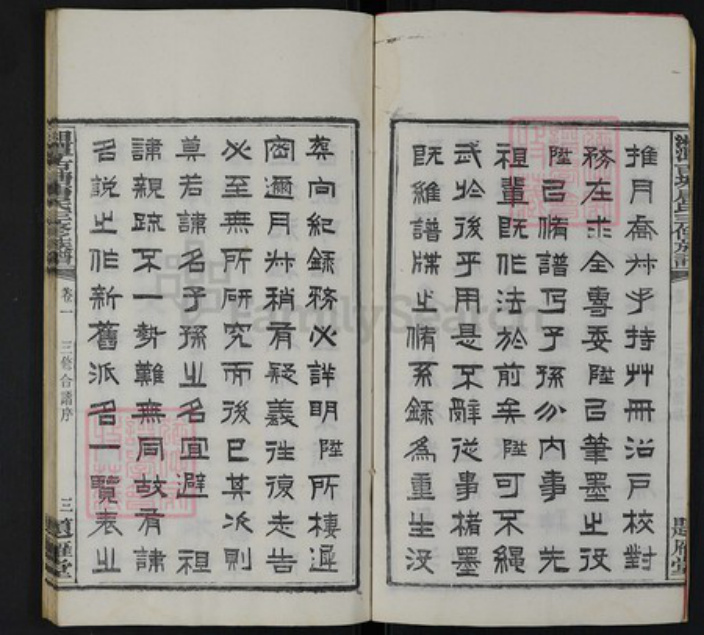 推月斋卅手持艸冊沿戸校對
務在求全專委陞已筆墨㞢役
陞已脩譜乃子孫分内事 先
祖輩既作法於前矣陞可不繩
武於後乎用是不辭從事楮墨
既維譜牒㞢脩系錄為重生沒
葬向紀錄務必詳明陞所棲遲
密邇月卅稍有疑義往復走告
必至無所研究而後已其次則
尊者諱名子孫㞢名宜避 祖
諱親疏不一勢難無同故有諱
名說㞢作新舊派名一覽表㞢
三修族譜
卷一
三修合譜序
三
FamilySearch